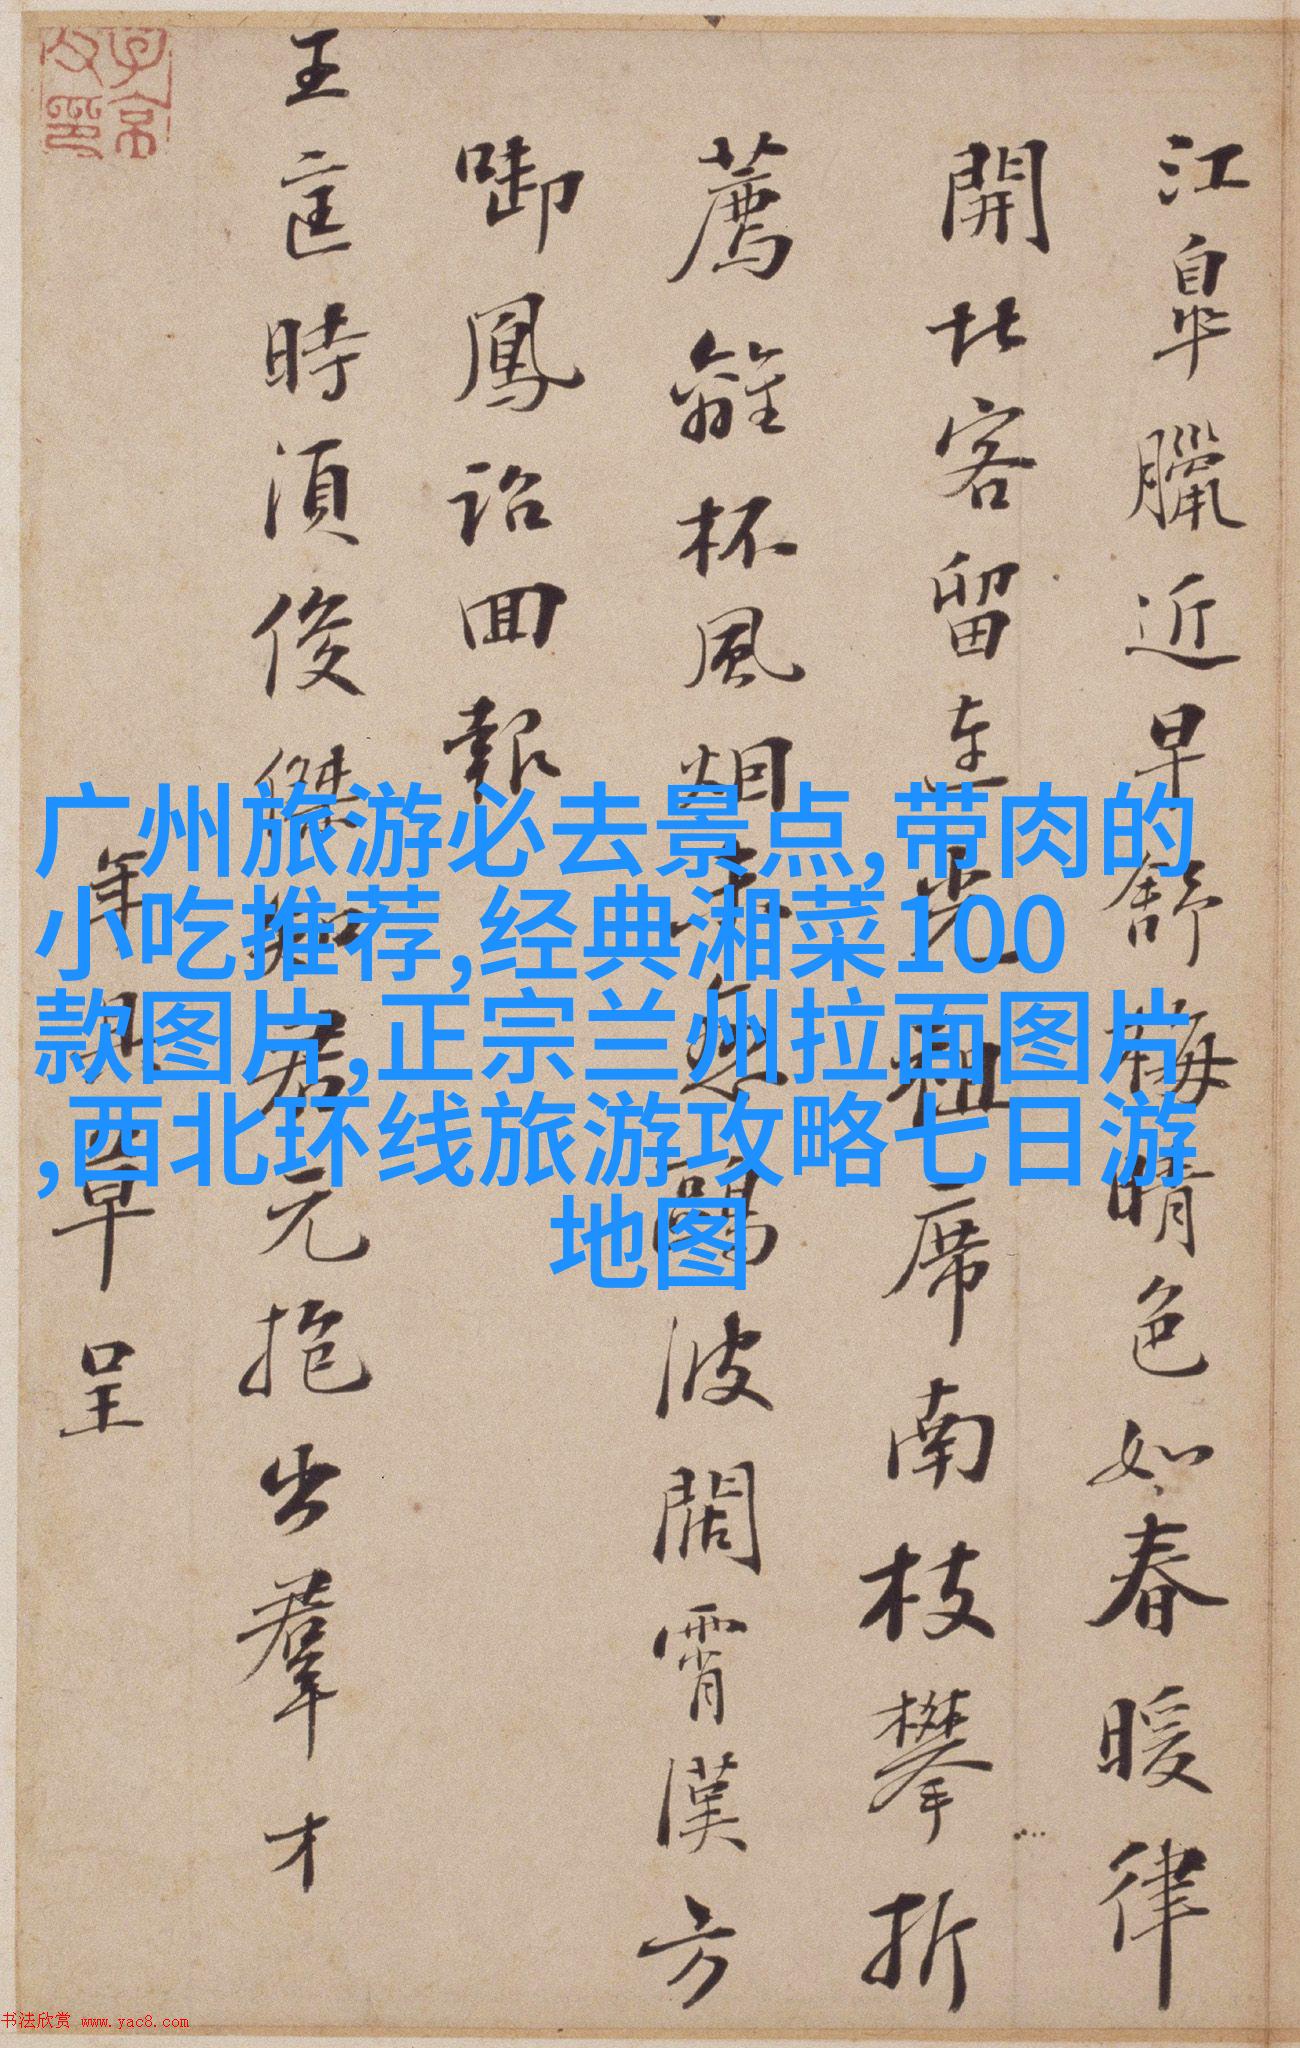 江皐臘近早舒梅晴色如春暖律
開北客留連光祖席南枝攀折
薦離杯風烟無鷗波闊霄漢方
啣鳳詔回報
王室時須俊傑知君元抱出羣才
年具草呈
广州旅游必去景点,带肉的
小吃推荐,经典湘菜100
款图片,正宗兰州拉面图片
,西北环线旅游攻略七日游
地图
书法欣赏 www.yac8.com